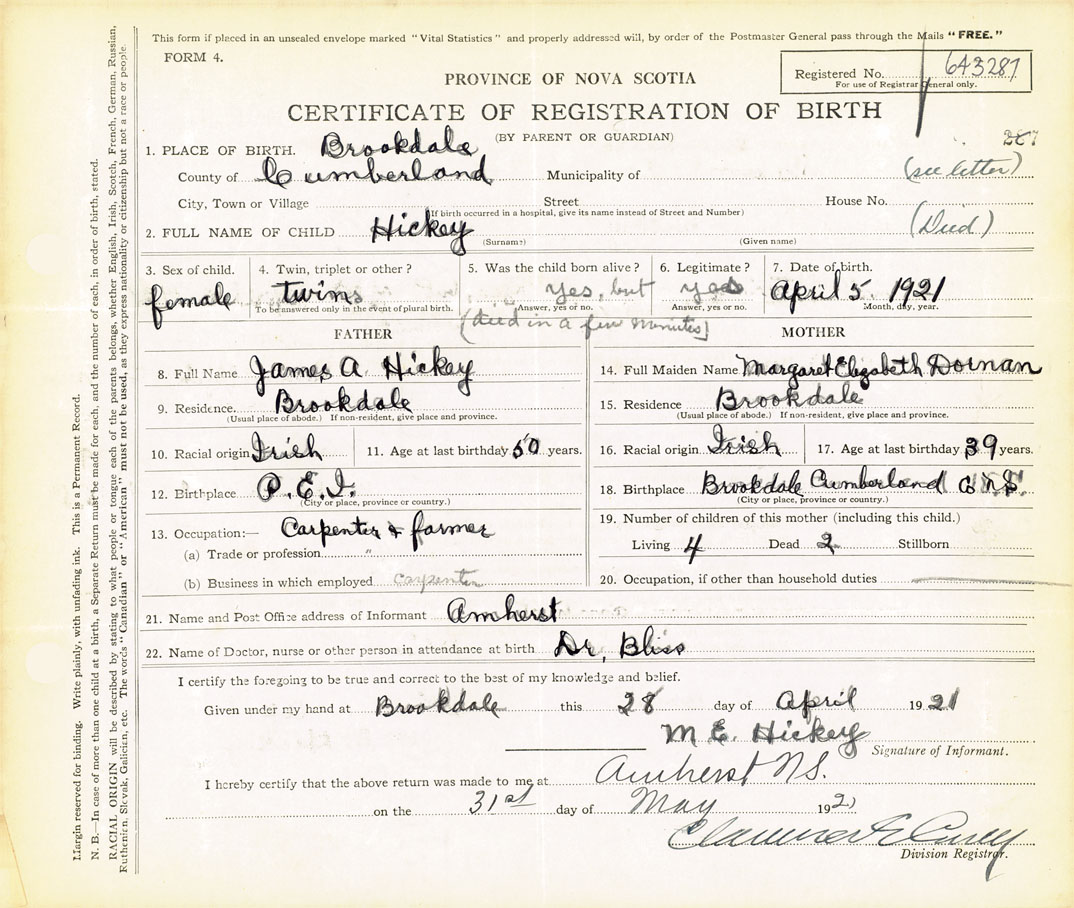 This form if placed in an unsealed envelope marked "Vital Statistics" and properly addressed will, by order of the Postmaster General pass through the Mails "FREE."
FORM 4.
Registered No. 643287
For use of Registrar General only.
PROVINCE OF NOVA SCOTIA
CERTIFICATE OF REGISTRATION OF BIRTH
(BY PARENT OR GUARDIAN)
287
1. PLACE OF BIRTH. Brookdale
County of Cumberland Municipality of (see letter)
City, Town or Village Street House No.
(If birth occurred in a hospital, give its name instead of Street and Number)
2. FULL NAME OF CHILD Hickey (Died)
(Surname) (Given name)
3. Sex of child. 4. Twin, triplet or other? 5. Was the child born alive? 6. Legitimate? 7. Date of birth.
female twins yes, but yes April 5 1921
To be answered only in the event of plural birth. Answer, yes or no. Answer, yes or no. Month, day, year.
(died in a few minutes)
FATHER MOTHER
8. Full Name James A. Hickey 14. Full Maiden Name Margaret Elizabeth Dornan
9. Residence. Brookdale 15. Residence Brookdale
(Usual place of abode.) If non-resident, give place and province. (Usual place of abode.) If non-resident, give place and province.
10. Racial origin Irish 11. Age at last birthday 50 years. 16. Racial origin Irish 17. Age at last birthday 39 years.
12. Birthplace P.E.I. 18. Birthplace Brookdale Cumberland Co N.S.
(City or place, province or country.) (City or place, province or country.)
13. Occupation:— Carpenter & farmer 19. Number of children of this mother (including this child.)
(a) Trade or profession " Living 4 Dead 2 Stillborn
(b) Business in which employed carpenter 20. Occupation, if other than household duties
21. Name and Post Office address of Informant Amherst
22. Name of Doctor, nurse or other person in attendance at birth Dr, Bliss
I certify the foregoing to be true and correct to the best of my knowledge and belief.
Given under my hand at Brookdale this 28 day of April 1921
M E. Hickey
Signature of Informant.
I hereby certify that the above return was made to me at Amherst N.S.
on the 31st day of May 1921
Clarence E
Division Registrar.
Margin reserved for binding. Write plainly, with unfading ink. This is a Permanent Record.
N. B.—In case of more than one child at a birth, a Separate Return must be made for each, and the number of each, in order of birth, stated.
RACIAL ORIGIN will be described by stating to what people or tongue each of the parents belongs, whether English, Irish, Scotch, French, German, Russian,
Ruthenian, Slovak, Galician, etc. The words "Canadian" or "American" must not be used, as they express nationality or citizenship but not a race or people.